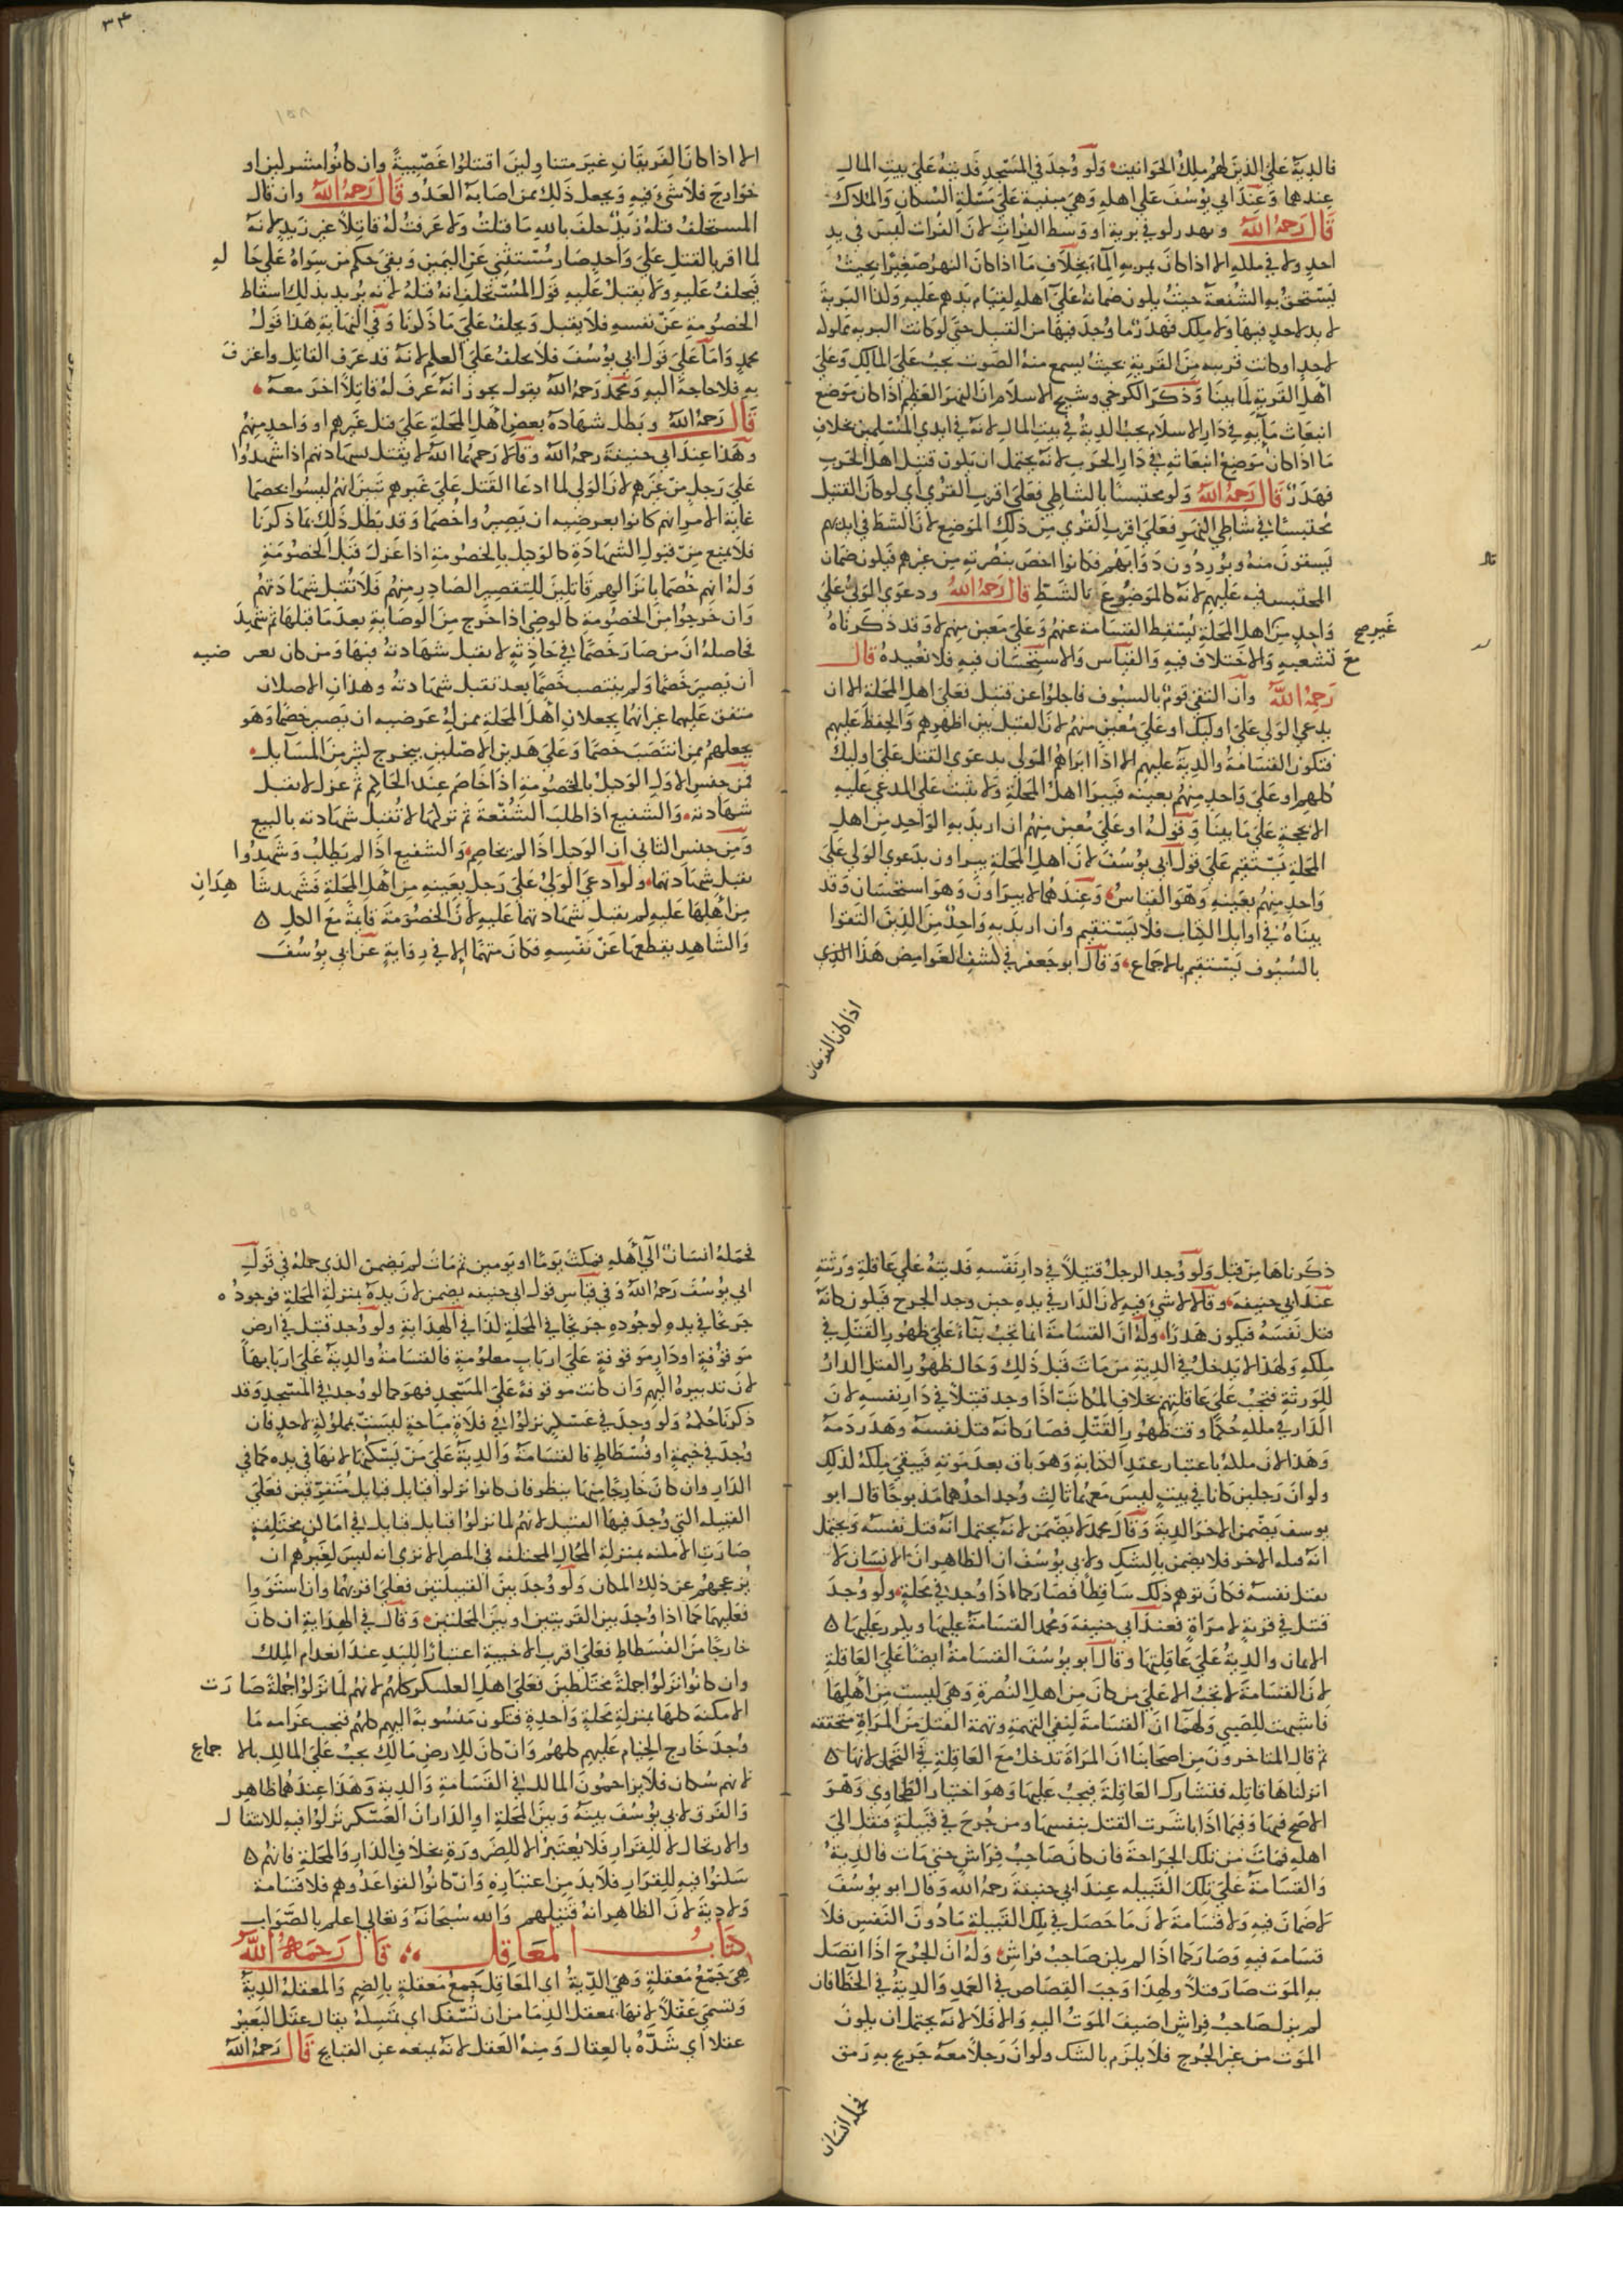 فالدية على الذين لهم ملك الحوانيت ولو وجد في المسجد فديته على بيت المال
عندهما وعند ابي يوسف على اهله وهي مبنية على مسئلة السكان والملاك
قال رحمه الله ويهدر لو في برية او وسط الفرات لان الفرات ليس في يد
احد ولا في ملكه الا اذا كان يمر به الماء بخلاف ما اذا كان النهر صغيرا بحيث
يستحق به الشفعة حيث يكون ضمانه على اهله لقيام يدهم عليه ولذا البرية
لا يد لاحد فيها ولا ملك فهدر ما وجد فيها من القتيل حتى لو كانت البرية مملوكة
لاحد او كانت قريبه من القرية بحيث يسمع منه الصوت يجب على المالك وعلى
اهل القرية لما بينا وذكر الكرخي وشيخ الاسلام ان النهر العظيم اذا كان موضع
انبعاث مآيه في دار الاسلام يجب الدية في بيت المال لانه في ايدي المسلمين بخلاف
ما اذا كان موضع انبعاثه في دار الحرب لانه يحتمل ان يكون قتيل اهل الحرب
فهدر قال رحمه الله ولو محتبسا بالشاطي فعلى اقرب القرى اي لو كان القتيل
محتبسا في شاطي النهر فعلى اقرب القرى من ذلك الموضع لان الشط في ايديهم
يستقون منه ويوردون دوابهم فكانوا اخص بنصرته من غيرهم فيكون ضمان
المحتبس فيه عليهم لانه كالموضوع بالشط قال رحمه الله ودعوى الولي على
واحد من اهل المحلة يسقط القسامة عنهم وعلى معين منهم لا وقد ذكرناه غير
مع تشعبه والاختلاف فيه والقياس والاستحسان فيه فلا نعيده قال
رحمه الله وان التقى قوم بالسيوف فاجلوا عن قتيل فعلى اهل المحلة الا ان
يدعي الولي على اوليك او على معين منهم لان القتيل بين اظهرهم والحفظ عليهم
فتكون القسامة والدية عليهم الا اذا ابراهم المولى بدعوى القتل على اوليك
كلهم او على واحد منهم بعينه فيبرا اهل المحلة ولا يثبت على المدعي عليه
الا بحجة على ما بينا وقوله او على معين منهم ان اريد به الواحد من اهل
المحلة يستقيم على قول ابي يوسف لان اهل المحلة يبراون بدعوى الولي على
واحد منهم بعينه وهو القياس وعندهما لا يبراون وهو استحسان وقد
بيناه في اوايل الكتاب فلا يستقيم وان اريد به واحد من الذين التقوا
بالسيوف يستقيم بالاجماع وقال ابو جعفر في كشف الغوامض هذا الذي
اذا كان الفريقان
٣٤
١٥٨
الا اذا كان الفريقان غير متاولين اقتتلوا عصبية وان كانوا مشركين او
خوارج فلا شيء فيه ويجعل ذلك من اصابة العدو قال رحمه الله وان قال
المستحلف قتله زيد حلف بالله ما قتلت ولا عرفت له قاتلا غير زيد لانه
لما اقر بالقتل على واحد صار مستثنى عن اليمين وبقي حكم من سواه على حاله
فيحلف عليه ولا يقبل عليه قول المستحلف انه قتله لانه يريد بذلك اسقاط
الخصومة عن نفسه فلا يقبل ويحلف على ما ذكرنا وفي النهاية هذا قول
محمد واما على قول ابي يوسف فلا يحلف على العلم لانه قد عرف القاتل واعترف
به فلا حاجة اليه ومحمد رحمه الله يقول يجوز انه عرف له قاتلا اخر معه
قال رحمه الله وبطل شهادة بعض اهل المحلة على قتل غيرهم او واحد منهم
وهذا عند ابي حنيفة رحمه الله وقالا رحمهما الله لا يقتل شهادتهم اذا شهدوا
على رجل من غيرهم لان الولى لما ادعا القتل على غيرهم تبين انهم ليسوا بخصما
غاية الامر انهم كانوا بعرضيه ان يصيروا خصما وقد بطل ذلك بما ذكرنا
فلا يمنع من قبول الشهادة كالوكيل بالخصومة اذا عزل قبل الخصومة
وله انهم خصما بانزالهم قاتلين للتقصير الصادر منهم فلا تقبل شهادتهم
وان خرجوا من الخصومة كالوصي اذا خرج من الوصاية بعد ما قبلها ثم شهد
فحاصله ان من صار خصما في حادثة لا يقبل شهادته فيها ومن كان بعرضيه
ان يصير خصما ولم ينتصب خصما بعد تقبل شهادته وهذان الاصلان
متفق عليهما غير انهما يجعلان اهل المحلة ممن له عرضيه ان يصير خصما وهو
يجعلهم ممن انتصب خصما وعلى هذين الاصلين يخرج كثير من المسايل
فمن جنس الاول الوكيل بالخصومة اذا خاصم عند الحاكم ثم عزل لا يقبل
شهادته والشفيع اذا طلب الشفعة ثم تركها لا تقبل شهادته بالبيع
ومن جنس الثاني ان الوكيل اذا لم يخاصم والشفيع اذا لم يطلب وشهدوا
يقبل شهادتهما ولو ادعى الولي على رجل بعينه من اهل المحلة فشهد شاهدان
من اهلها عليه لم يقبل شهادتهما عليه لان الخصومة قايمة مع الكل
والشاهد يقطعها عن نفسه فكان متهما الا في رواية عن ابي يوسف
ذكرناها من قبل ولو وجد الرجل قتيلا في دار نفسه فديته على عاقلة ورثته
عند ابي حنيفه وقالا لا شيء فيه لان الدار في يده حين وجد الجرح فيكون كانه
قتل نفسه فيكون هدرا وله ان القسامة انما تجب بناء على ظهور القتل في
ملكه ولهذا لا يدخل في الدية من مات قبل ذلك وحال ظهور القتل الدار
للورثة فتجب على عاقلتهم بخلاف المكاتب اذا وجد قتيلا في دار نفسه لان
الدار في ملكه حكما وقت ظهور القتل فصار كانه قتل نفسه وهدر دمه
وهذا لان ملكه باعتبار عقد الكتابة وهو باق بعد موته فيبقى ملكه لذلك
ولو ان رجلين كانا في بيت ليس معهما ثالث وجد احدهما مذبوحا قال ابو
يوسف يضمن الاخر الدية وقال محمد لا يضمن لانه يحتمل انه قتل نفسه ويحتمل
انه قتله الاخر فلا يضمن بالشك ولابي يوسف ان الظاهر ان الانسان لا
يقتل نفسه فكان توهم ذلك ساقطا فصار كما اذا وجد في محلة ولو وجد
قتيل في قرية لامراة فعند ابي حنيفة ومحمد القسامة عليها ويكرر عليها
الايمان والدية على عاقلتها وقال ابو يوسف القسامة ايضا على العاقلة
لان القسامة لا تجب الا على من كان من اهل النصرة وهي ليست من اهلها
فاشبهت للصبي ولهما ان القسامة لنفي التهمة وتهمة القتل من المراة متحققه
ثم قال المتاخرون من اصحابنا ان المراة تدخل مع العاقلة في التحمل لانها
انزلناها قاتله فتشارك العاقلة فيجب عليها وهو اختيار الطحاوي وهو
الاصح فيها وفيما اذا باشرت القتل بنفسها ومن جرح في قبيلة فنقل الى
اهله فمات من تلك الجراحة فان كان صاحب فراش حتى مات فالدية
والقسامة على تلك القبيله عند ابي حنيفة رحمه الله وقال ابو يوسف
لا ضمان فيه ولا قسامة لان ما حصل في تلك القبيلة مادون النفس فلا
قسامة فيه وصار كما اذا لم يكن صاحب فراش وله ان الجرح اذا اتصل
به الموت صار قتلا ولهذا وجب القصاص في العمد والدية في الخطا فان
لم يزل صاحب فراش اضيف الموت اليه والا فلا لانه يحتمل ان يكون
الموت من غير الجرح فلا يلزم بالشك ولو ان رجلا معه جريح به رمق
فحمله انسان
١٥٩
فحمله انسان الى اهله فمكث يوما او يومين ثم مات لم يضمن الذي حمله في قول
ابي يوسف رحمه الله وفي قياس قول ابي حنيفه يضمن لان يده بمنزلة المحلة فوجوده
جريحا في يده لوجوده جريحا في المحلة لذا في الهداية ولو وجد قتيل في ارض
موقوفة او دار موقوفة على ارباب معلومة فالقسامة والدية على اربابها
لان تدبيره اليهم وان كانت موقوفة على المسجد فهو كما لو وجد في المسجد وقد
ذكرنا حكمه ولو وجد في عسكر نزلوا في فلاة مباحة ليست بمملوكة لاحد فان
وجد في خيمة او فسطاط فالقسامة والدية على من يسكنها لانها في يده كما في
الدار وان كان خارجا منها ينظر فان كانوا نزلوا قبايل قبايل متفرقين فعلى
القبيله التي وجد فيها القتيل لانهم لما نزلوا قبايل قبايل في اماكن مختلفة
صارت الامكنه بمنزلة المحال المختلفه في المصر الا ترى انه ليس لغيرهم ان
يزعجهم عن ذلك المكان ولو وجد بين القبيلتين فعلى اقربهما وان استووا
فعليهما كما اذا وجد بين القريتين او بين المحلتين وقال في الهداية ان كان
خارجا من الفسطاط فعلى اقرب الاخبية اعتبارا لليد عند انعدام الملك
وان كانوا نزلوا جملة مختلطين فعلى اهل العسكر كلهم لانهم لما نزلوا جملة صارت
الامكنة كلها بمنزلة محلة واحدة فتكون منسوبة اليهم كلهم فتجب غرامه ما
وجد خارج الخيام عليهم كلهم وان كان للارض مالك يجب على المالك بالاجماع
لانهم سكان فلا يزاحمون المالك في القسامة والدية وهذا عندهما ظاهر
والفرق لابي يوسف بينه وبين المحلة او الدار ان العسكر نزلوا فيه للانتقال
والارتحال لا للقرار فلا يعتبر الا للضرورة بخلاف الدار والمحلة فانهم
سكنوا فيه للقرار فلا بد من اعتباره وان كانوا لقوا عدوهم فلا قسامة
ولا دية لان الظاهر انه قتيلهم والله سبحانه وتعالى اعلم بالصواب
كتاب المعاقل قال رحمه الله
هي جمع معقلة وهي الدية اي المعاقل جمع معقلة بالضم والمعقلة الدية
وتسمى عقلا لانها تمعقل الدما من ان تسفك اي تمسكه يقال عقل البعير
عقلا اي شده بالعقال ومنه العقل لانه يمنعه عن القبايح قال رحمه الله